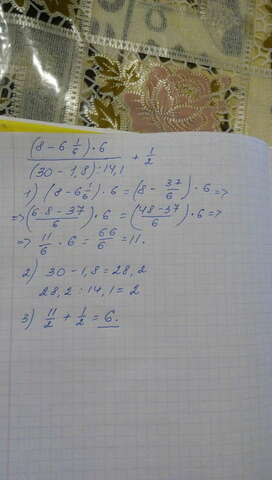 (8 - 6 1/6) · 6 / (30 - 1,8) : 14,1 + 1/2
1) (8 - 6 1/6) · 6 = (8 - 37/6) · 6 =>
=> (6·8 - 37 / 6) · 6 = (48 - 37 / 6) · 6 =>
=> 11/6 · 6 = 66/6 = 11.
2) 30 - 1,8 = 28,2
28,2 : 14,1 = 2
3) 11/2 + 1/2 = 6.